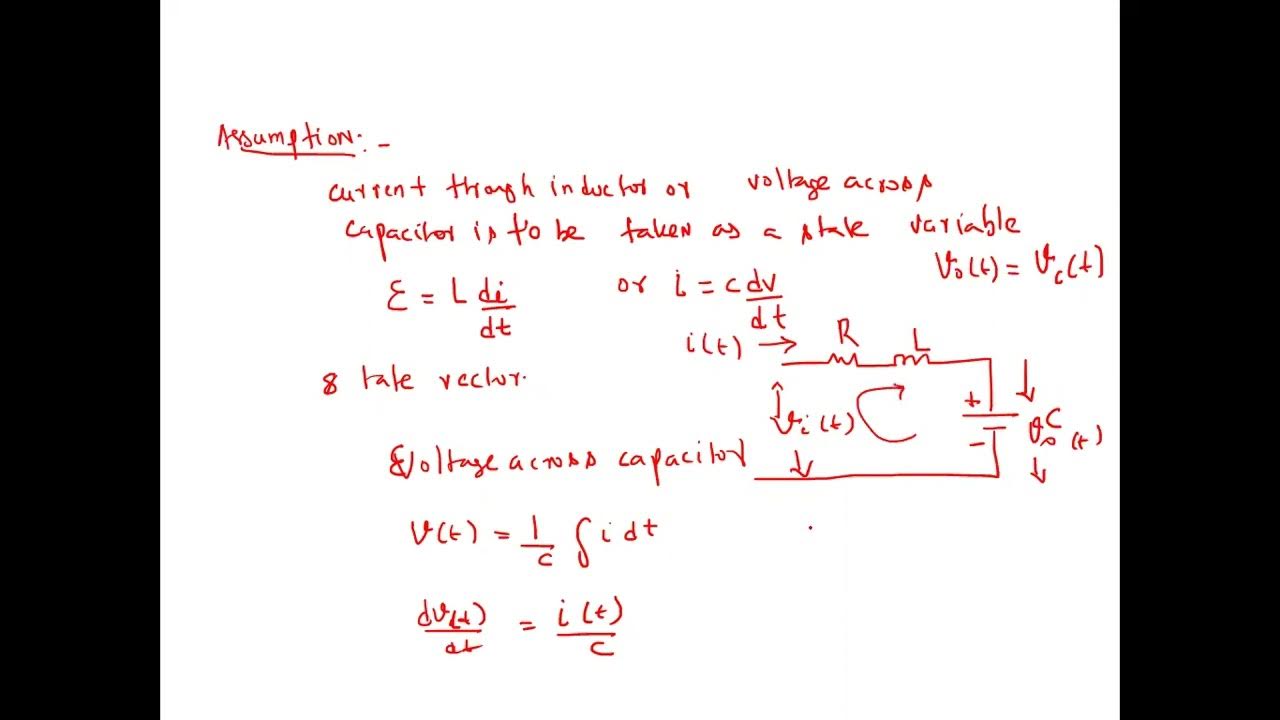 Assumption:-
current through inductor or voltage across
capacitor is to be taken as a state variable
V₀(t) = V_c(t)
ε = L di/dt or i = c dv/dt
i(t) → R L
state vector.
+
v_i(t) - C v₀(t)
Voltage across capacitor
v(t) = 1/c ∫ i dt
dv(t)/dt = i(t)/c